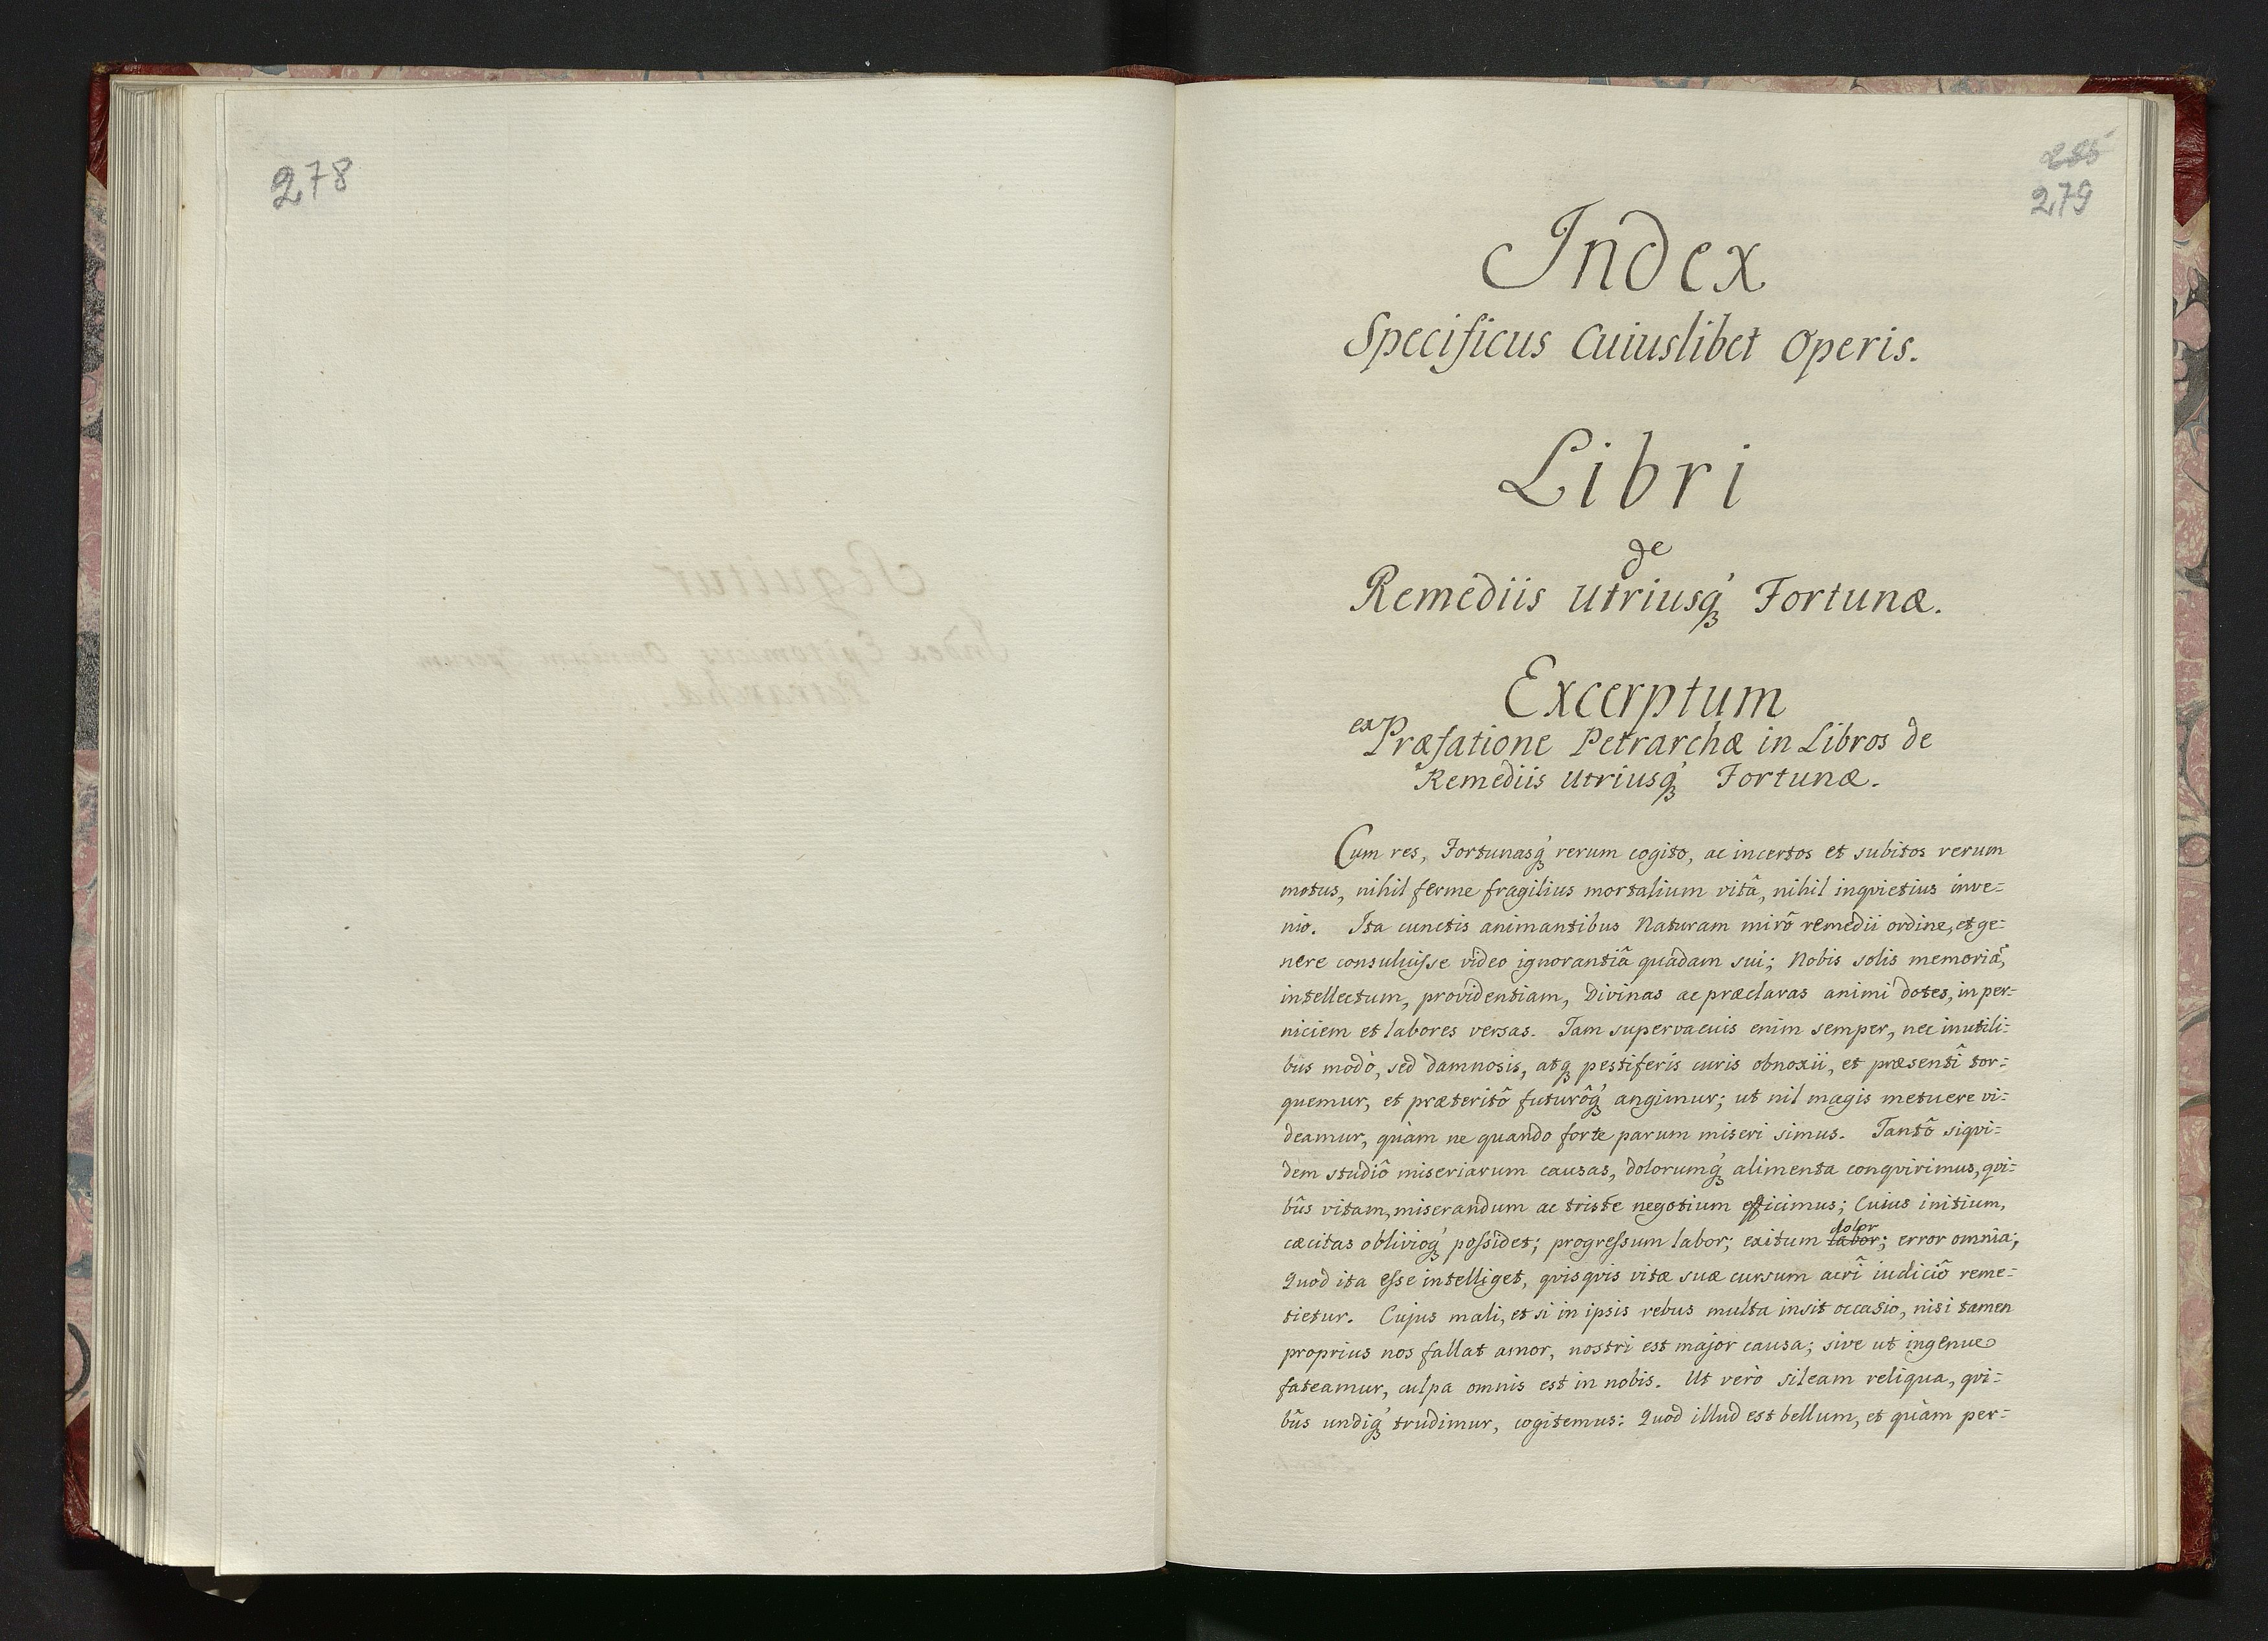 278
279
Index
Specificus Cuiuslibet Operis.
Libri
de
Remediis Utriusq́ꝫ Fortunæ.
Excerptum
ex Præfatione Petrarchæ in Libros de
Remediis Utriusq́ꝫ Fortunæ.
Cum res, Fortunasq́ꝫ rerum cogito, ac incertos et subitos rerum
motus, nihil ferme fragilius mortalium vitâ, nihil inqvietius inve=
nio. Ita cunctis animantibus Naturam mirô remedii ordine, et ge=
nere consuluisse video ignorantiâ quadam sui; Nobis solis memoriã,
intellectum, providentiam, Divinas ac præclaras animi dotes, in per=
niciem et labores versas. Tam supervacuis enim semper, nec inutili=
bus modò, sed damnosis, atqꝫ pestiferis curis obnoxii, et præsentî tor=
quemur, et præteritô futurôq́ꝫ angimur; ut nil magis metuere vi=
deamur, quàm ne quando forte parum miseri simus. Tantô siqvi=
dem studiô miseriarum causas, dolorumq́ꝫ alimenta conqvirimus, qvi=
bûs vitam, miserandum ac triste negotium efficimus; Cuius initium,
cæcitas oblivioq́ꝫ possidet; progressum labor; exitum ~~labor~~ dolor; error omnia;
Quod ita esse intelliget, qvisqvis vitæ suæ cursum acrî iudiciô reme=
tietur. Cujus mali, et si in ipsis rebus multa insit occasio, nisi tamen
proprius nos fallat amor, nostri est major causa; sive ut ingenue
fateamur, culpa omnis est in nobis. Ut verò sileam reliqua, qvi=
bûs undiq́ꝫ trudimur, cogitemus: Quod illud est bellum, et quàm per=
Sequitur
Index Epitomicus Omnium Operum
Petrarchæ.